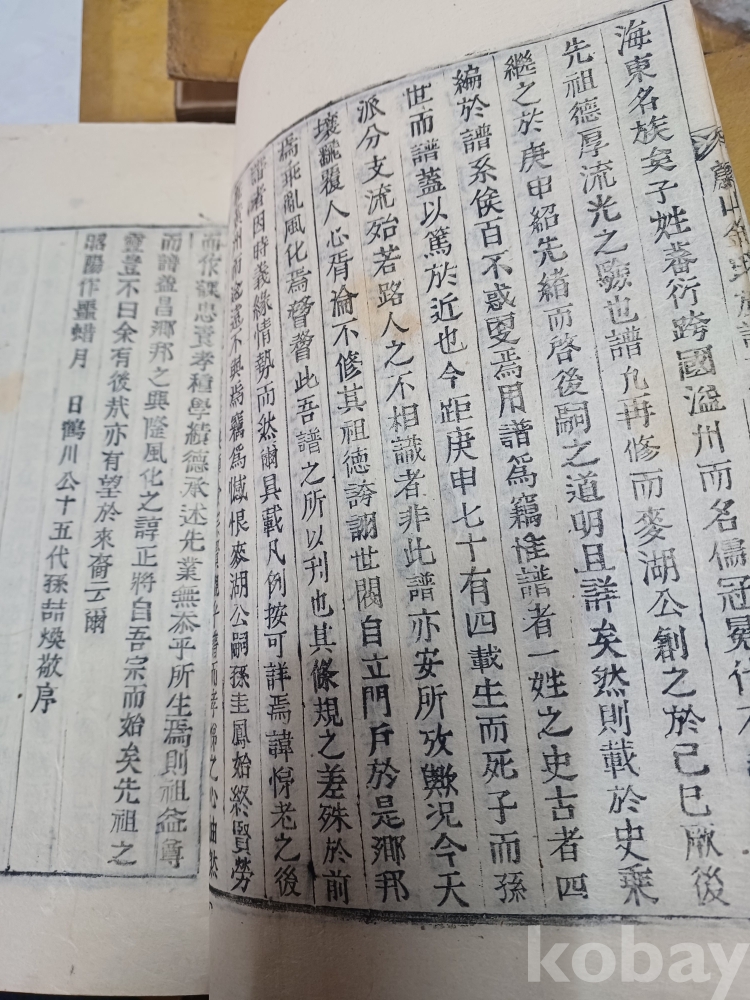 金氏族譜
海東名族矣子姓蕃衍跨國溢州而名儒冠冕
先祖德厚流光之驗也譜凡再修而麥湖公創之於己巳厥後
繼之於庚申紹先緒而啓後嗣之道明且詳矣然則載於史乘
編於譜系俟百不惑更焉用譜爲竊惟譜者一姓之史古者四
世而譜蓋以篤於近也今距庚申七十有四載生而死子而孫
派分支流殆若路人之不相識者非此譜亦安所攷歟况今天
壤飜覆人心胥淪不修其祖德誇詡世閥自立門戶於是鄕邦
爲乖亂風化焉瞀瞀此吾譜之所以刊也其條規之差殊於前
譜者因時義緣情勢而然爾具載凡例按可詳焉諱惇老之後
不與焉竊爲憾恨麥湖公嗣孫圭鳳始終賢勞
而孝悌之心油然
而作讓忠資孝種學績德承述先業無忝乎所生焉則祖益尊
而譜益昌鄕邦之興隆風化之諄正將自吾宗而始矣先祖之
靈豈不曰余有後㢤亦有望於來裔云爾
昭陽作噩蜡月 日鶴川公十五代孫喆煥敬序
kobay